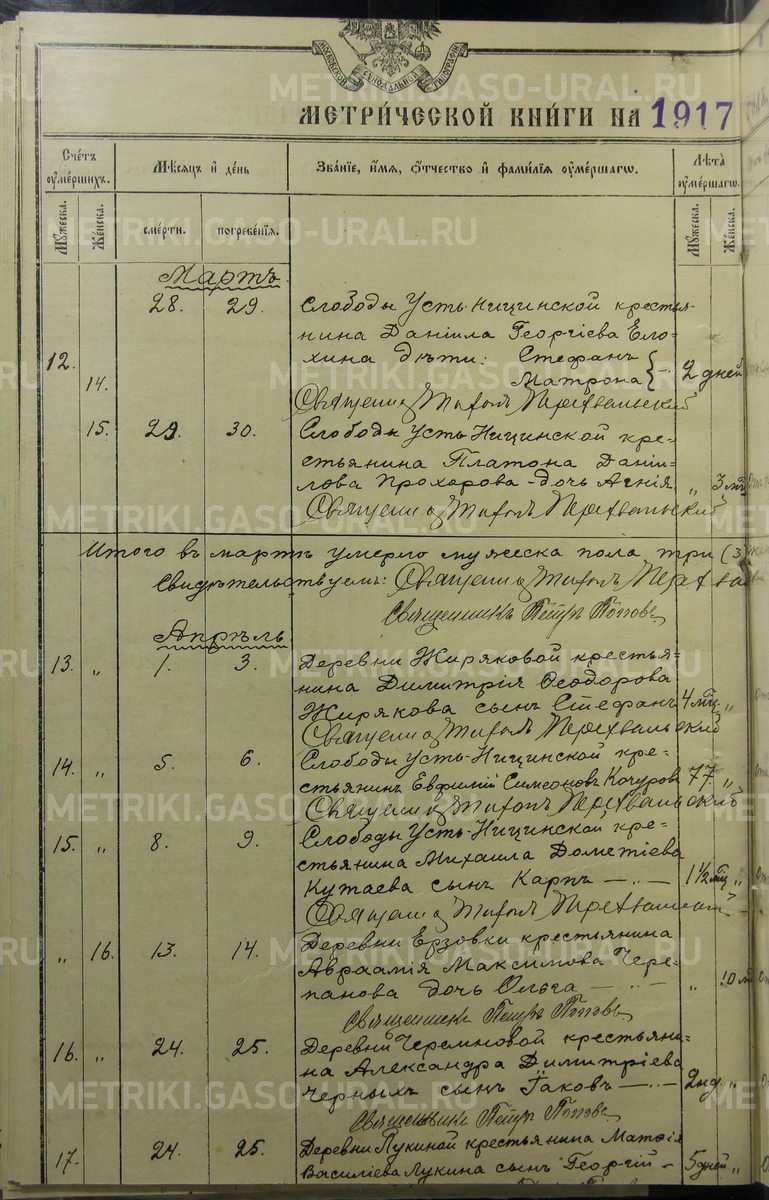 МОСКОВСКОЙ СѴНОДАЛЬНОЙ ТИПОГРАФІИ
МЕТРИ́ЧЕСКОЙ КНИ́ГИ НА 1917
Сче́тъ оу҆ме́ршихъ.
Мѣ́сяцъ и҆ де́нь
Зва́нїе, и҆́мя, ѻ҆́тчество и҆ фами́лїя оу҆ме́ршагѡ.
Лѣ́та оу҆ме́ршагѡ.
Мꙋ́жеска. Же́нска. сме́рти. погребе́нїя. Мꙋ́жеска. Же́нска.
Мартъ
28. 29. Слободы Усть-Ницинской крестья-
нина Даніила Георгіева Ело-
12. хина дѣти: Стефанъ
14. Матрона 2 дней
Священ. Тихонъ Перехвальскій
15. 29. 30. Слободы Усть-Ницинской кре-
стьянина Платона Даніи-
лова Прохорова - дочь Агнія. „ 3 мѣ
Священ. Тихонъ Перехвальскій
Итого въ мартѣ умерло мужеска пола три (3)
Свидѣтельствуемъ: Священ. Тихонъ Перехва
Священникъ Петръ Поповъ
Апрѣль
13. „ 1. 3. Деревни Жиряковой крестья-
нина Димитрія Ѳеодорова
Жирякова сынъ Стефанъ 4 мѣц „
Священ. Тихонъ Перехвальскій
14. „ 5. 6. Слободы Усть-Ницинской кре-
стьянинъ Евфимій Симеоновъ Кочуровъ 77. „
Священ. Тихонъ Перехвальскій
15. „ 8. 9. Слободы Усть-Ницинской кре-
стьянина Михаила Дометіева
Кутаева сынъ Карпъ — „ — 1 ½ мѣц „
Священ. Тихонъ Перехвальскій
„ 16. 13. 14. Деревни Ерзовки крестьянина
Авраамія Максимова Чере-
панова дочь Ольга — „ — „ 10
Священникъ Петръ Поповъ
16. „ 24. 25. Деревни Черемновой крестьяни-
на Александра Димитріева
Черныхъ сынъ Іаковъ — „ — 2 нд. „
Священникъ Петръ Поповъ
17. 24. 25. Деревни Лукиной крестьянина Матѳія
Василіева Лукина сынъ Георгій - 5 дней „
METRIKI.GASO-URAL.RU